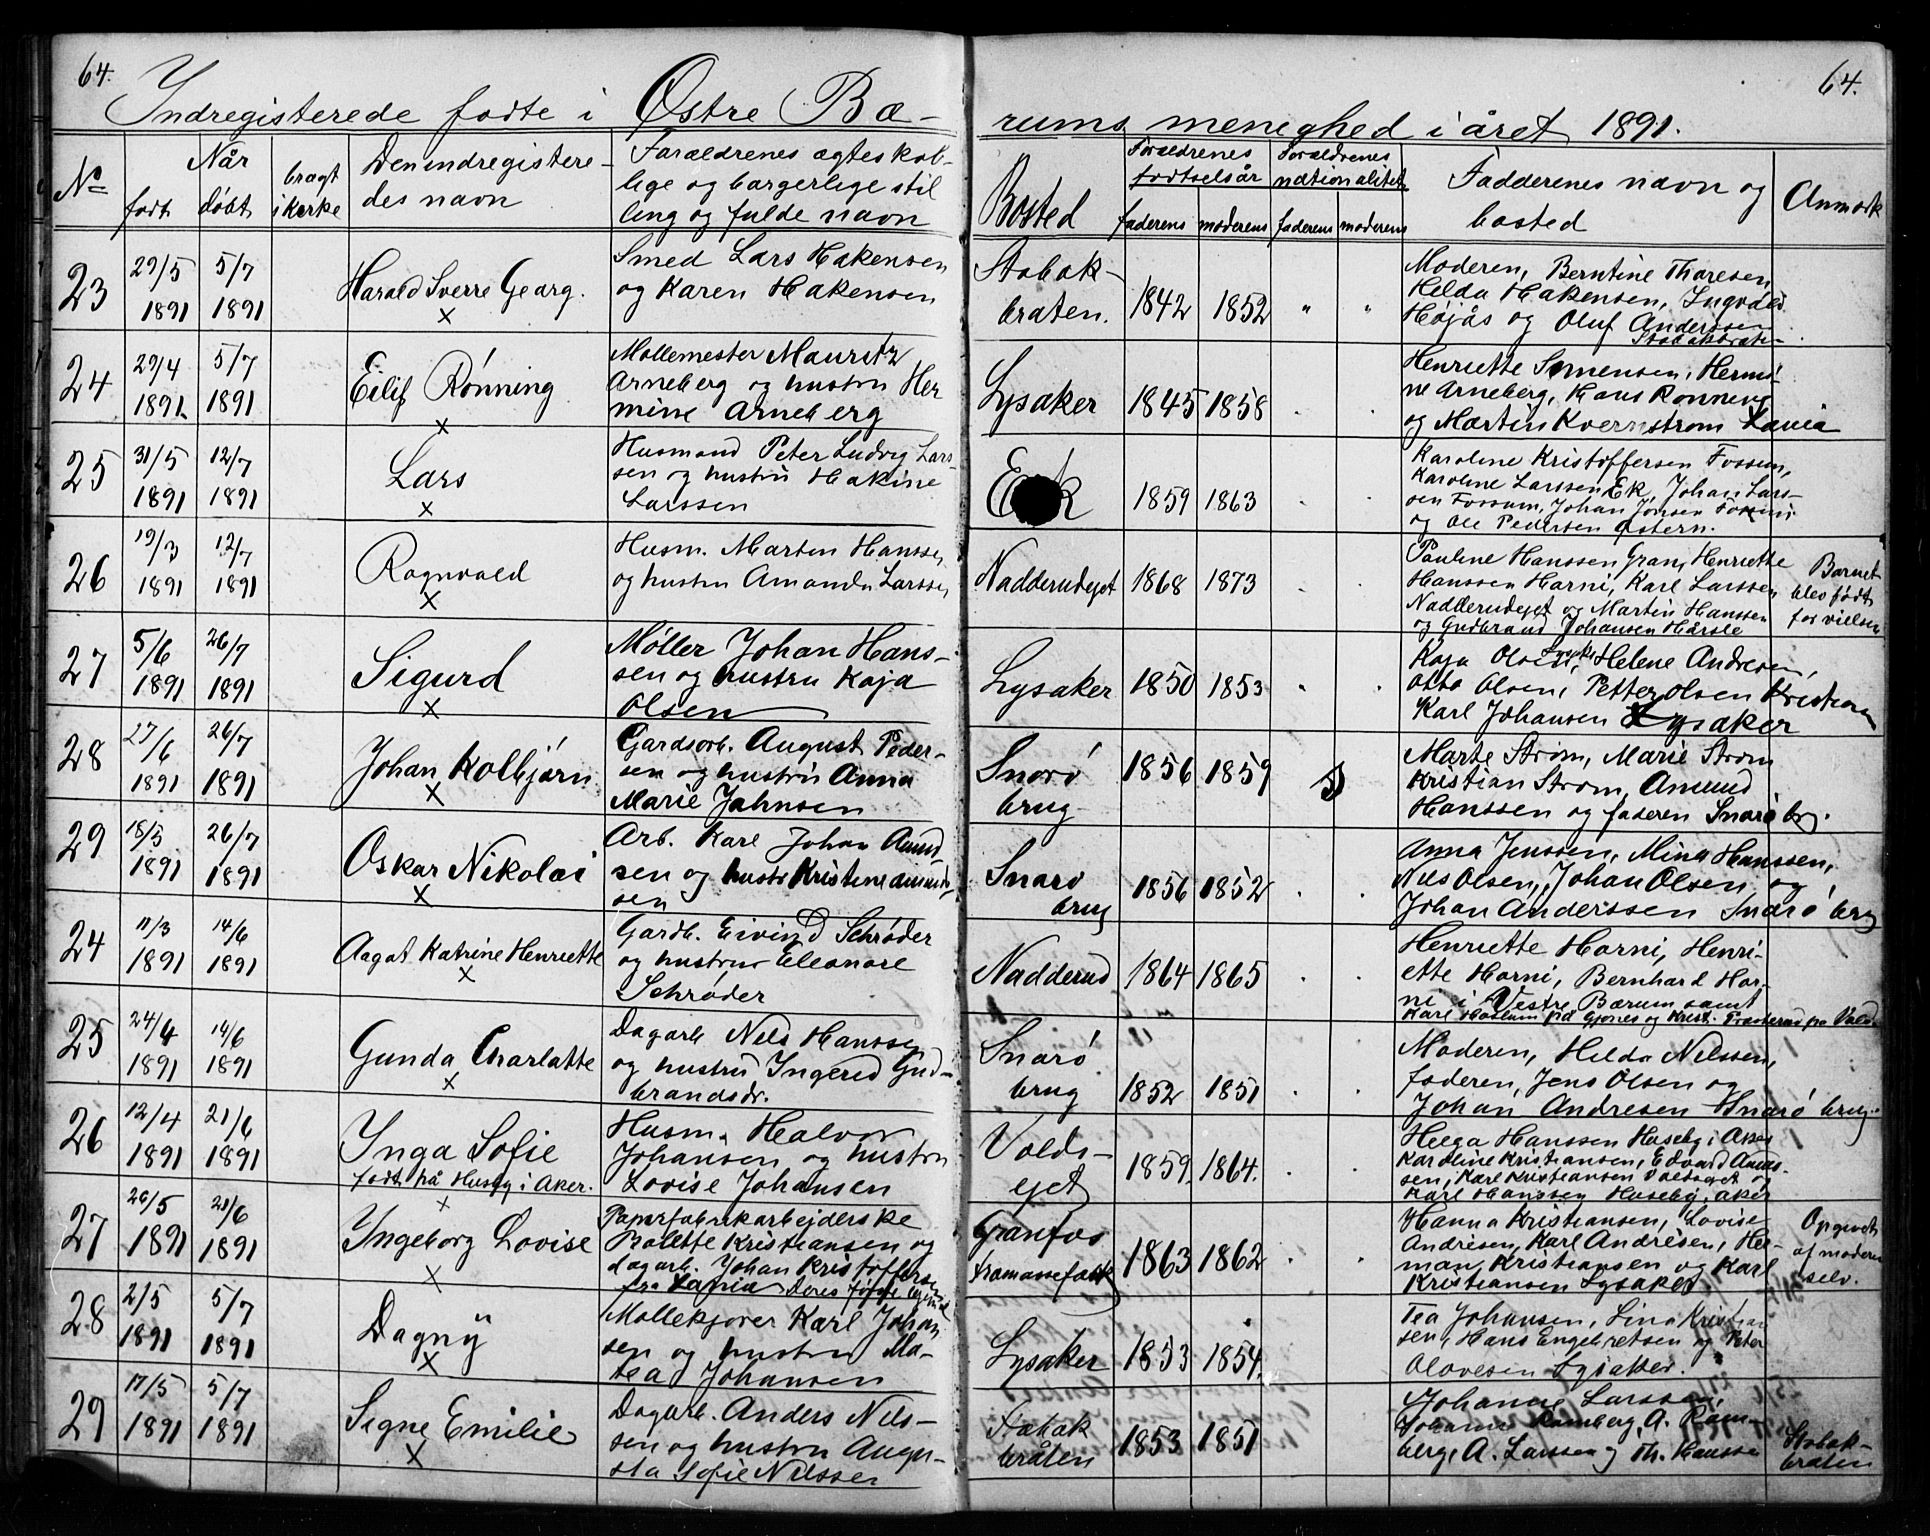 64.
64.
Indregisterede fødte i Østre Bæ-
rums menighed i året 1891.
No
Når
født
døbt
bragt
i kirke
Den indregistere-
des navn
Forældrenes ægteskab-
lige og borgerlige stil
ling og fulde navn
Bosted
Forældrenes
fødselsår
faderens
moderens
Forældrenes
nationalitet
faderens
moderens
Fadderenes navn og
bosted
Anmærk
23
29/5
1891
5/7
1891
Harald Sverre Georg.
x
Smed Lars Hakensen
og Karen Hakensen
Stabæk-
braten.
1842
1852
"
"
Moderen, Berntine Thoresen,
Helda Hakensen, Ingvald
Højås og Oluf Anderssen
24
29/4
1891
5/7
1891
Eilif Rønning
x
Møllemester Mauritz
Arneberg og hustru Her
mine Arneberg
Lysaker
1845
1858
Henriette Sørnensen, Hermi-
ne Arneberg, Hans Rønning
og Martin Kvernstrøm Lavia
25
31/5
1891
12/7
1891
Lars
x
Husmand Peter Ludvig Lars-
sen og hustru Hakine
Larssen
1859
1863
Karoline Kristoffersen Fossum,
Karoline Larssen Ek, Johan Lars-
sen Fossum, Johan Jonsen Fossum
og Ole Pedersen Østern.
26
19/3
1891
12/7
1891
Ragnvald
x
Husm. Marten Hanssen
og hustru Amanda Larssen
Nadderudejet
1868
1873
Pauline Hanssen Gran, Henriette
Hanssen Horni, Karl Larssen
Nadderudejet og Martin Hanssen
og Gudbrand Johansen Hårsle
Barnet
blev født
før vielsen
27
5/6
1891
26/7
1891
Sigurd
x
Møller Johan Hans-
sen og hustru Kaja
Olsen
Lysaker
1850
1853
Kaja Olsen, Helene Andresen,
Otto Olsen, Petter Olsen Kristiania
Karl Johansen Lysaker
28
27/6
1891
26/7
1891
Johan Kolbjørn
x
Gardsarb. August Peder-
sen og hustru Anna
Marie Jahnsen
Snarø
brug
1856
1859
Marte Strøm, Marie Strøm
Kristian Strøm, Amund
Hanssen og faderen Snarø br.
29
18/5
1891
26/7
1891
Oskar Nikolai
x
Arb. Karl Johan Amund
sen og hustr Kristine Amund-
sen
Snarø
brug
1856
1852
Anna Jenssen, Mina Hanssen,
Nils Olsen, Johan Olsen og
Johan Anderssen Snarø brug
24
11/3
1891
14/6
1891
Aagot Katrine Henriette
x
Gardb. Eivind Schrøder
og hustru Eleonore
Schrøder
Nadderud
1864
1865
Henriette Horni, Henri-
ette Horni, Bernhard Hor-
ni i Vestre Bærum samt
25
24/4
1891
14/6
1891
Gunda Charlatte
x
Dagarb. Nils Hanssen
og hustru Ingerid Gud-
brandsdr.
Snarø
brug
1852
1851
Moderen, Helda Nilssen,
faderen, Jens Olsen og
Johan Andresen Snarø brug.
26
12/4
1891
21/6
1891
Ynga Sofie
født på Huseby i Aker.
x
Husm. Halvor
Johansen og hustru
Lovise Johansen
Volds-
ejet
1859
1864.
Helga Hanssen Huseby i Aker
Karoline Kristiansen, Edvard Amund-
sen, Karl Kristiansen Voldsejet og
Karl Hanssen Huseby, Aker
27
26/5
1891
21/6
1891
Yngeborg Lovise
x
Papirfabrikarbejderske
Bolette Kristiansen og
dagarb. Johan Kristoffersen
fra Lavia
Granfos
træmassefabk
1863
1862
Hanna Kristiansen, Lovise
Andresen, Karl Andresen, Her-
man Kristiansen og Karl
Kristiansen Lysaker
Opgivet
af moderen
selv.
28
2/5
1891
5/7
1891
Dagny
x
Møllekjører Karl Johan
sen og hustru Ma-
tea Johansen
Lysaker
1853
1854.
Tea Johansen, Lina Kristian
sen, Hans Engebretsen og Peter
Olavesen Lysaker.
29
17/5
1891
5/7
1891
Signe Emilie
x
Dagarb. Anders Nils-
sen og hustru Augu-
sta Sofie Nilssen
Stabæk
bråten
1853
1851
Johanne Larssen,
Johanne Ramberg, A. Ram-
berg, A. Larssen og Th. Hanssen
Stabæk-
bråten